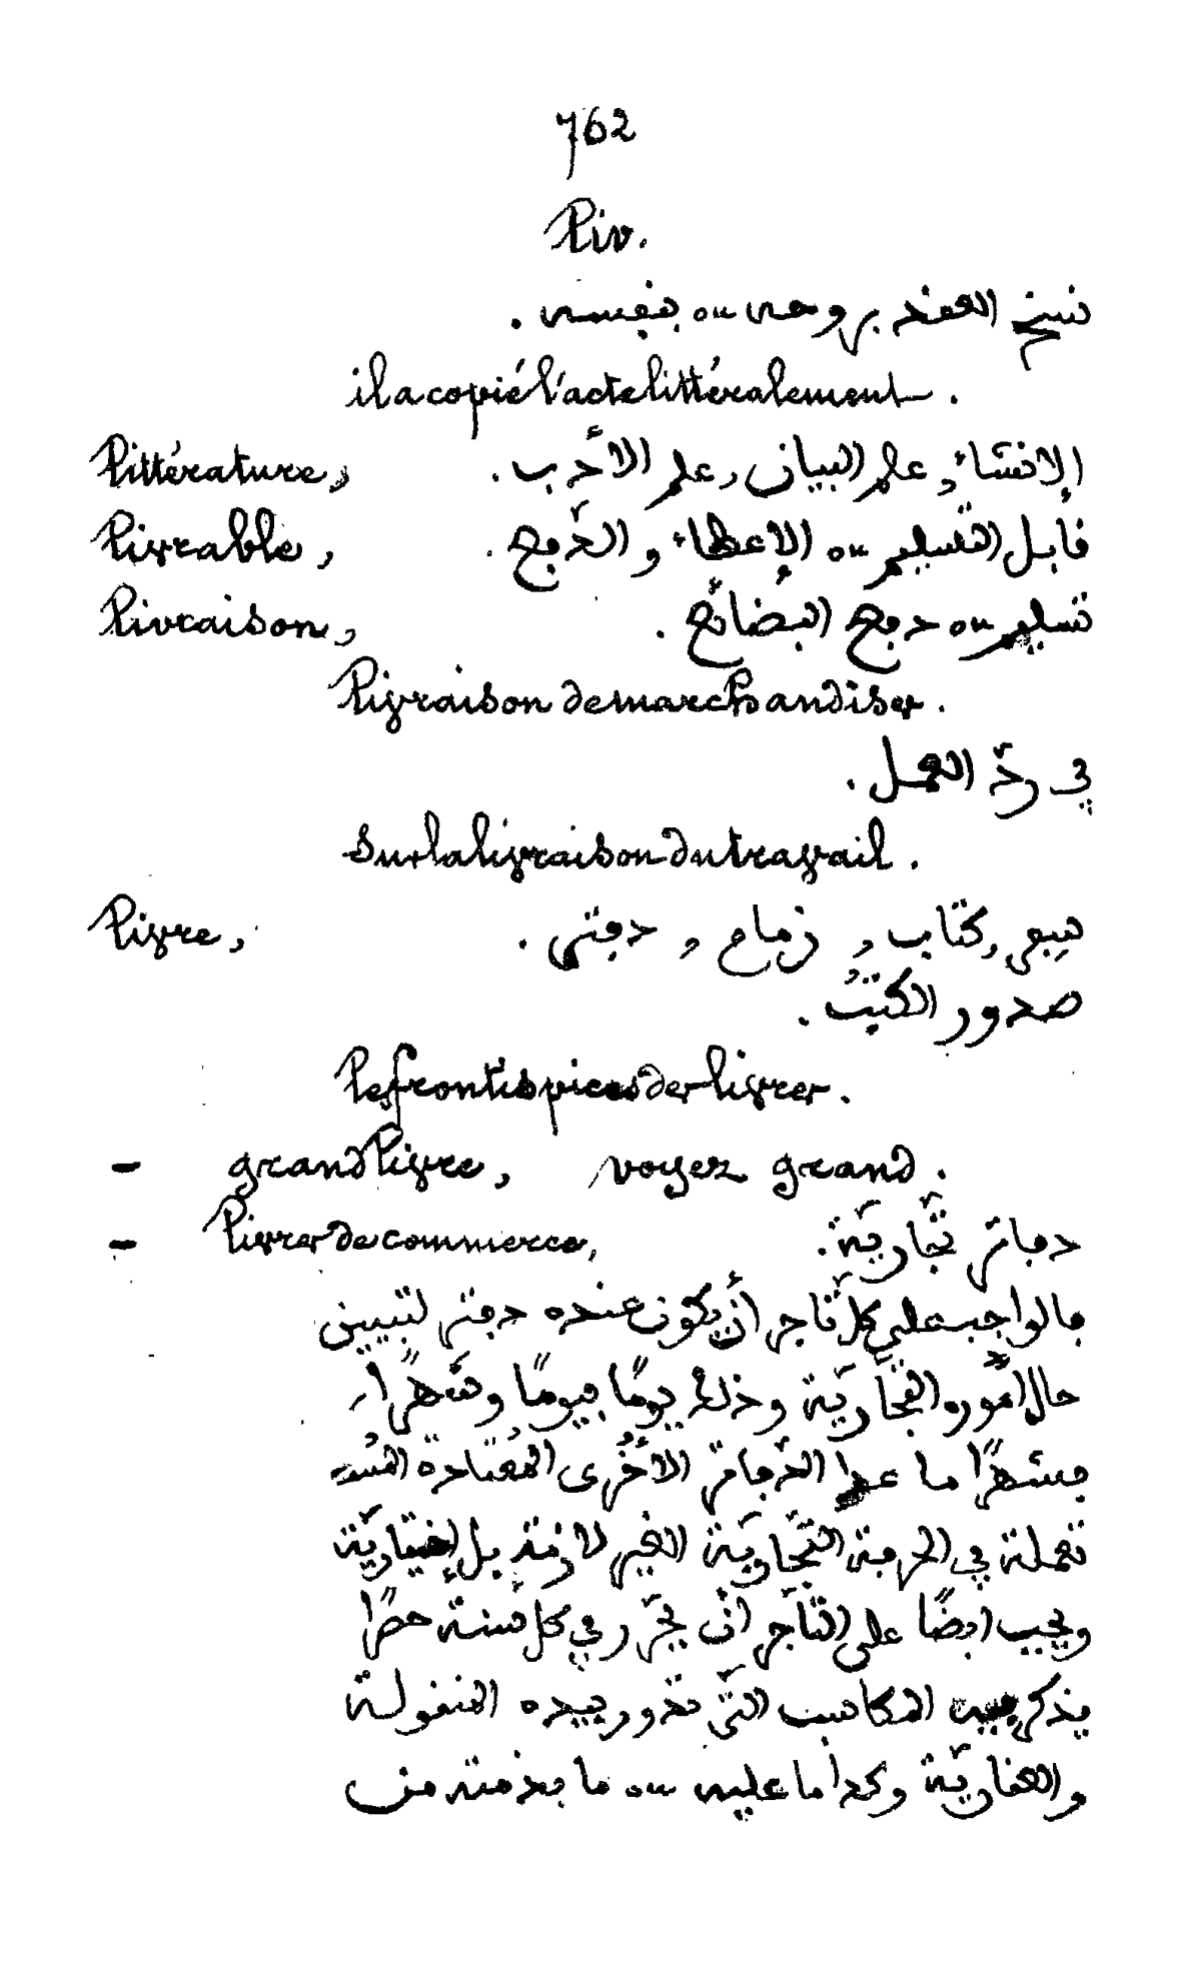 762
Liv.
نسخ العقد بروحه ou بنفسه .
il a copié l'acte littéralement .
Littérature, الإنشاء و علم البيان و علم الأدب .
Livrable, قابل التسليم ou الإعطاء و الدّفع .
Livraison, تسليم ou دفع البضائع .
Livraison de marchandises .
في ردّ العمل .
Sur la livraison du travail .
Livre, سفر و كتاب و زمام و دفتر .
صدور الكُتُب .
Les frontispices des livres .
– grand Livre, voyez grand .
– Livres de commerce, دفاتر تجّاريّة .
فالواجب على كلّ تاجر أن يكون عنده دفتر لتبيين
حال أموره التّجاريّة وذلك يومًا فيومًا وشهرًا
فشهرًا ما عدا الدّفاتر الأُخرى المُعتادة المُستـ
ـعملة في الحرفة التّجّاريّة الغير لازمة بل إختياريّة
ويجب ايضًا على التّاجر أن يحرّر في كل سنة حصرًا
يذكر فيه المكاسب التّي تدور بيده المنقولة
والعقاريّة وكذا ما عليه ou ما بذمته من